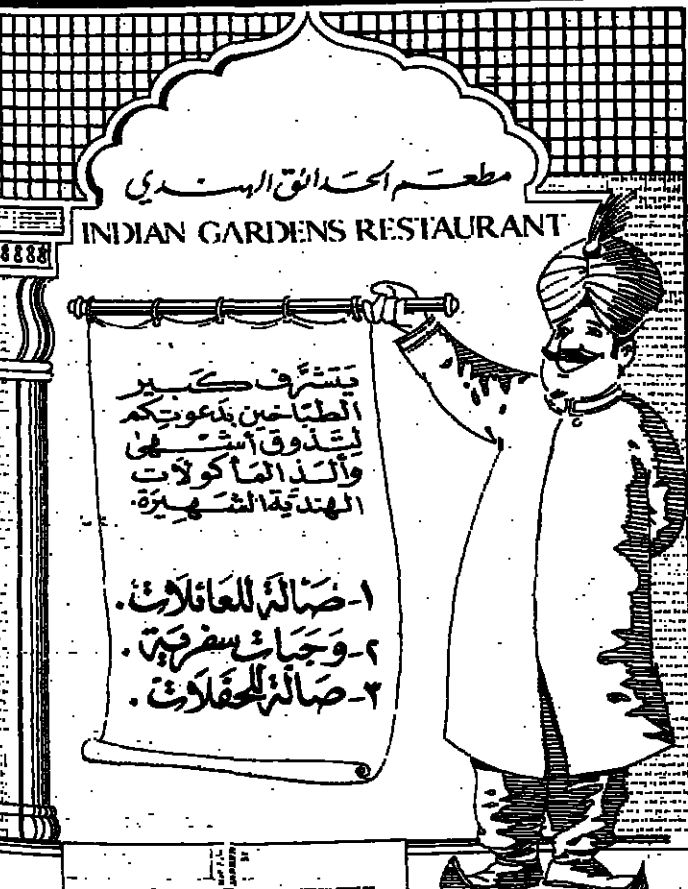 مطعم الحدائق الهندي
INDIAN GARDENS RESTAURANT
يتشرف كبير
الطباخين بدعوتكم
لتذوق أشهى
وألذ المأكولات
الهندية الشهيرة.
١- صالة للعائلات.
٢- وجبات سفرية.
٣- صالة للحفلات.